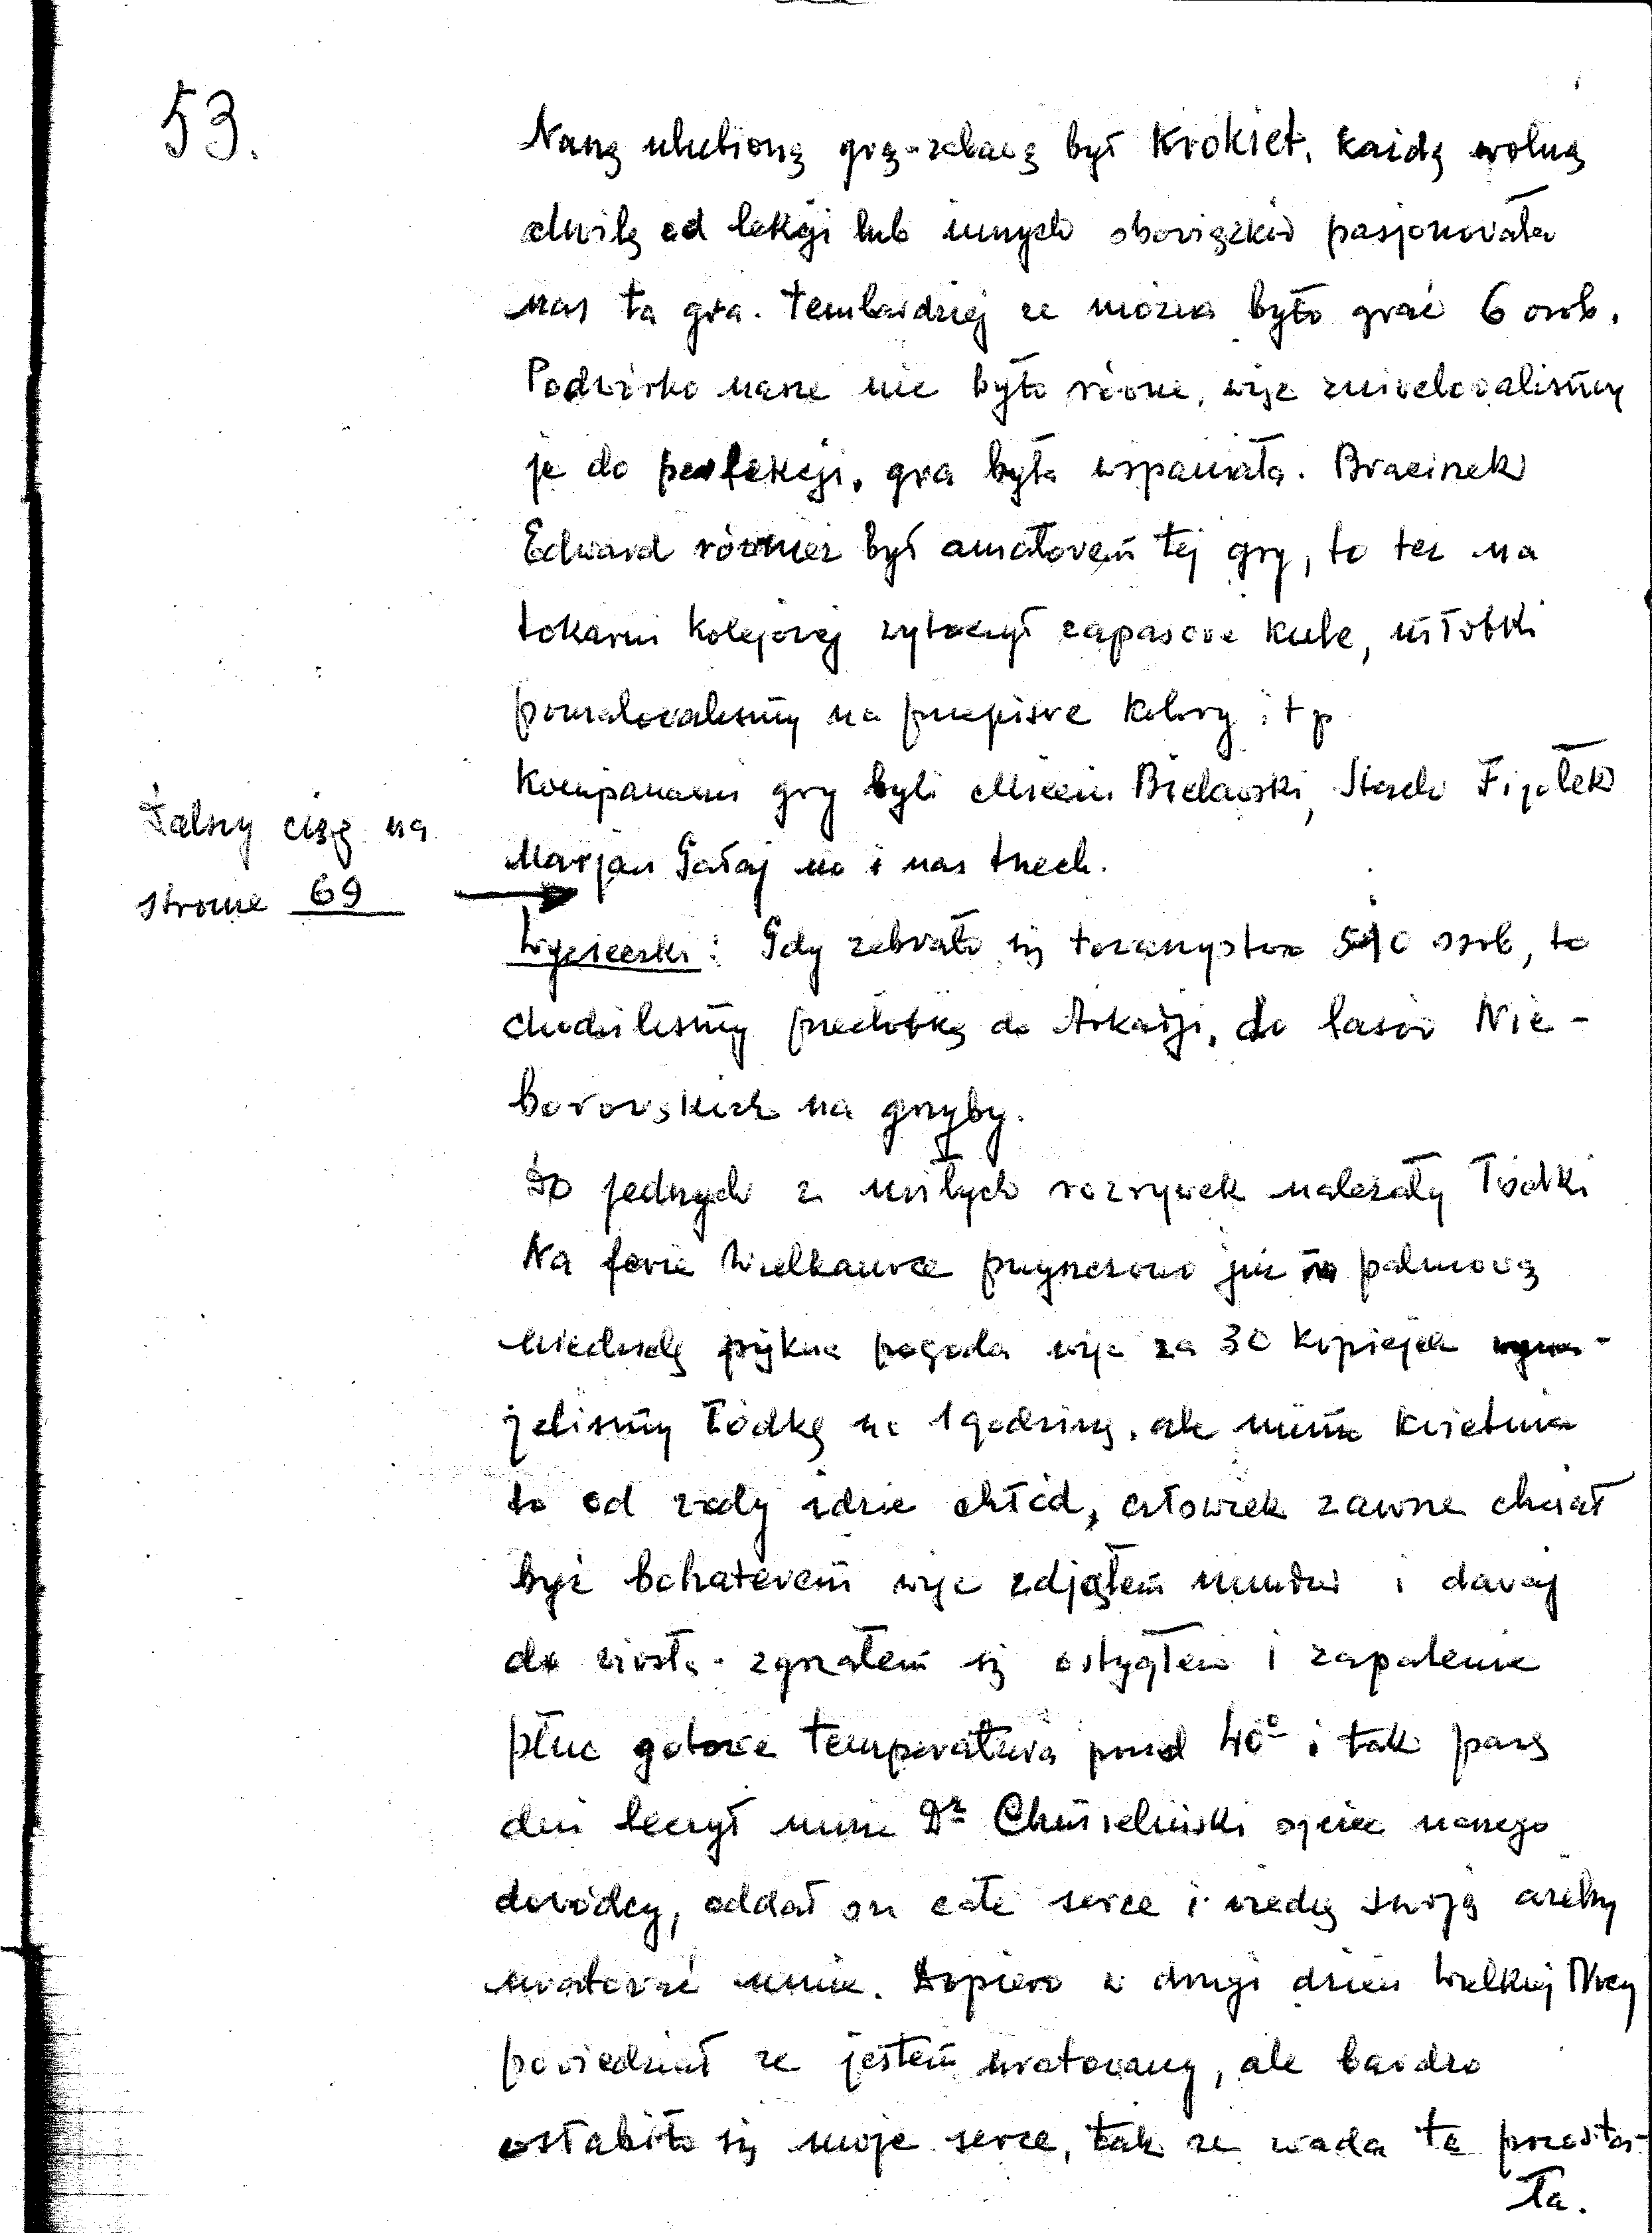 53.
Naszą ulubioną grą-zabawą był Krokiet. Każdą wolną
chwilę od lekcji lub innych obowiązków pasjonowała
nas ta gra. tembardziej ze można było grać 6 osób.
Podwórko nasze nie było równe, więc zniwelowaliśmy
je do perfekcji, gra była wspaniała. Braciszek
Edward również był amatorem tej gry, to tez na
tokarni kolejowej wytoczył zapasowe kule, młotki
pomalowaliśmy na przepisowe kolory i t p
Kompanami gry byli Miecio Bielawski, Stach Fijołek
Marjan Gałaj no i nas trzech.
Dalszy ciąg na
stronie 69
Wycieczki: Gdy zebrało się towarzystwo 510 osób, to
chodziliśmy piechotką do Arkadji, do lasów Nie-
borowskich na grzyby.
Do jednych z miłych rozrywek należały łódki
Na ferie Wielkanocne przyniesiono już palmową
niedzielę piękna pogoda więc za 30 kopiejek wyna-
jeliśmy łódkę na 1 godzinę, ale mimo kwietnia
to od wody idzie chłód, człowiek zawsze chciał
być bohaterem więc zdjąłem mundur i dawaj
do wiosła. zgrzałem się ostygłem i zapalenie
płuc gotowe temperatura ponad 40° i tak parę
dni leczył mnie Dr Chmieliński ojciec naszego
dowódcy, oddał on całe serce i wiedzę swoją ażeby
uratować mnie. Dopiero w drugi dzień Wielkiej Nocy
powiedział ze jestem uratowany, ale bardzo
osłabiło się moje serce, tak ze wada ta pozosta-
ła.